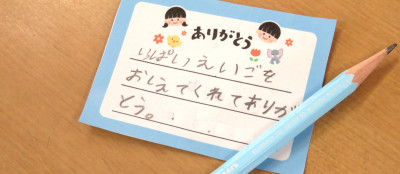 ありがとう
いっぱいえいごを
おしえてくれてありが
とう。